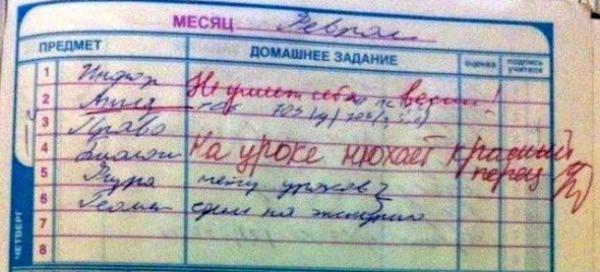 МЕСЯЦ Феврал
ПРЕДМЕТ ДОМАШНЕЕ ЗАДАНИЕ оценка подпись учителя
1 Инфор Не умеет себя вести!
2 Англ
3 Право
4 Биологи На уроке нюхает красный перец
5 Физра нету уроков
6 Геомет
7
8
ЧЕТВЕРГ